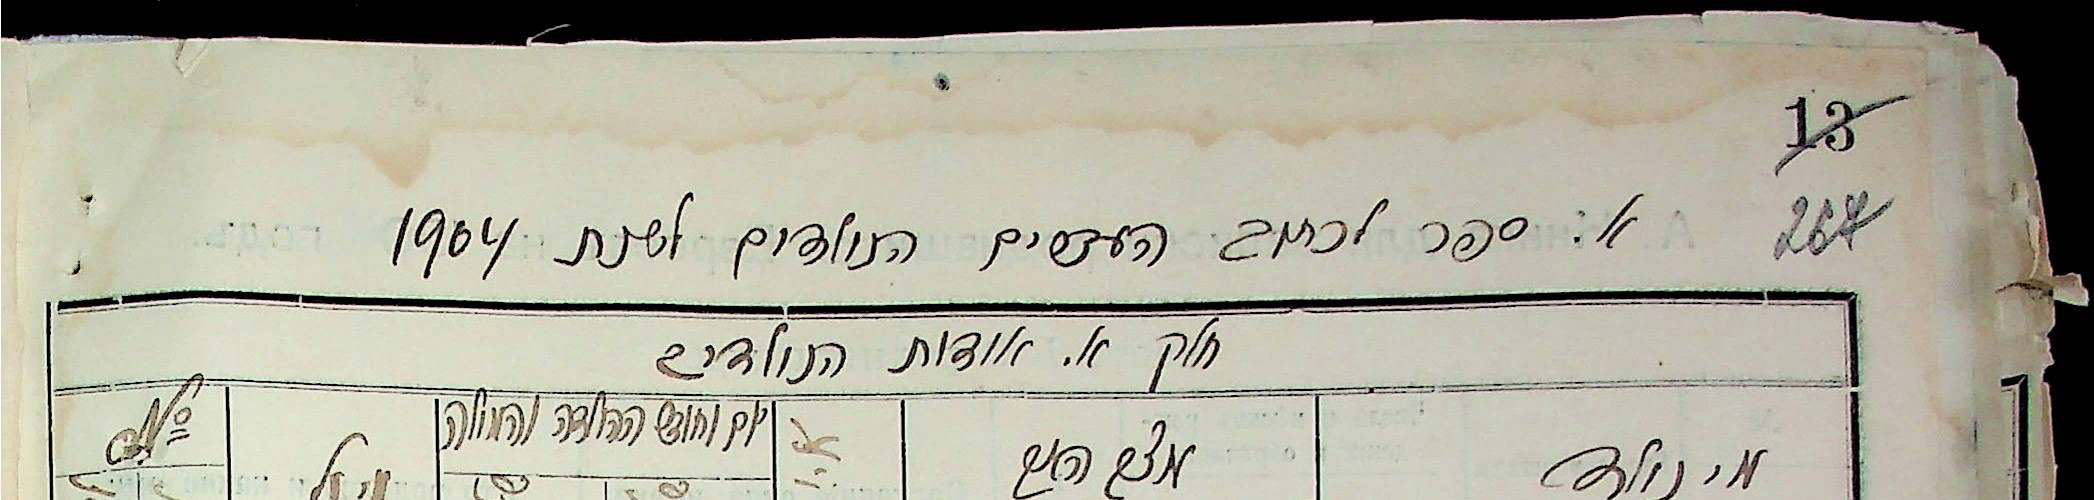 13
267
א. ספר לכתוב העברים הנולדים לשנת 1904
חלק א. אודות הנולדים
יום וחודש ההולדה והמילה
№
מצב האב
מי נולד